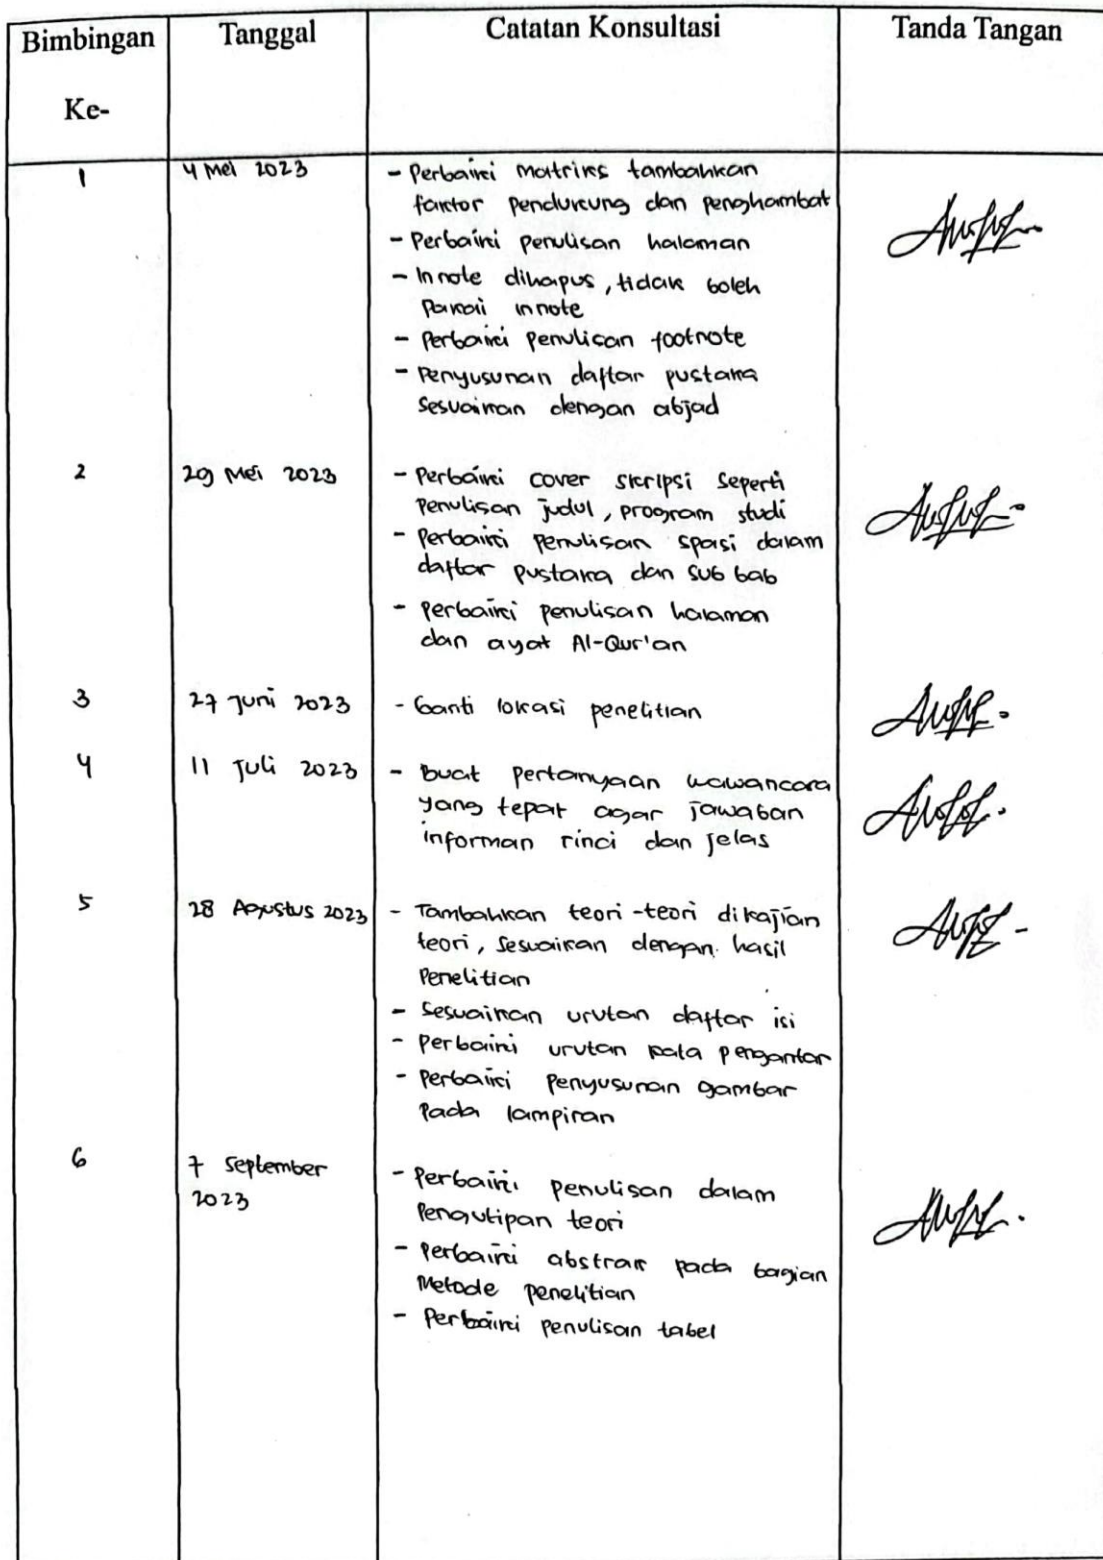 Bimbingan Ke- Tanggal Catatan Konsultasi Tanda Tangan
1 4 Mei 2023 - Perbaiki matriks tambahkan
faktor pendukung dan penghambat
- Perbaiki penulisan halaman
- Innote dihapus, tidak boleh
pakai innote
- Perbaiki penulisan footnote
- Penyusunan daftar pustaka
sesuaikan dengan abjad
2 29 Mei 2023 - Perbaiki cover skripsi seperti
penulisan judul, program studi
- Perbaiki penulisan spasi dalam
daftar pustaka dan sub bab
- Perbaiki penulisan halaman
dan ayat Al-Qur'an
3 27 Juni 2023 - Ganti lokasi penelitian
4 11 Juli 2023 - Buat pertanyaan wawancara
yang tepat agar jawaban
informan rinci dan jelas
5 28 Agustus 2023 - Tambahkan teori-teori dikajian
teori, sesuaikan dengan hasil
penelitian
- Sesuaikan urutan daftar isi
- Perbaiki urutan kata pengantar
- Perbaiki penyusunan gambar
pada lampiran
6 7 September
2023 - Perbaiki penulisan dalam
pengutipan teori
- Perbaiki abstrak pada bagian
Metode penelitian
- Perbaiki penulisan tabel